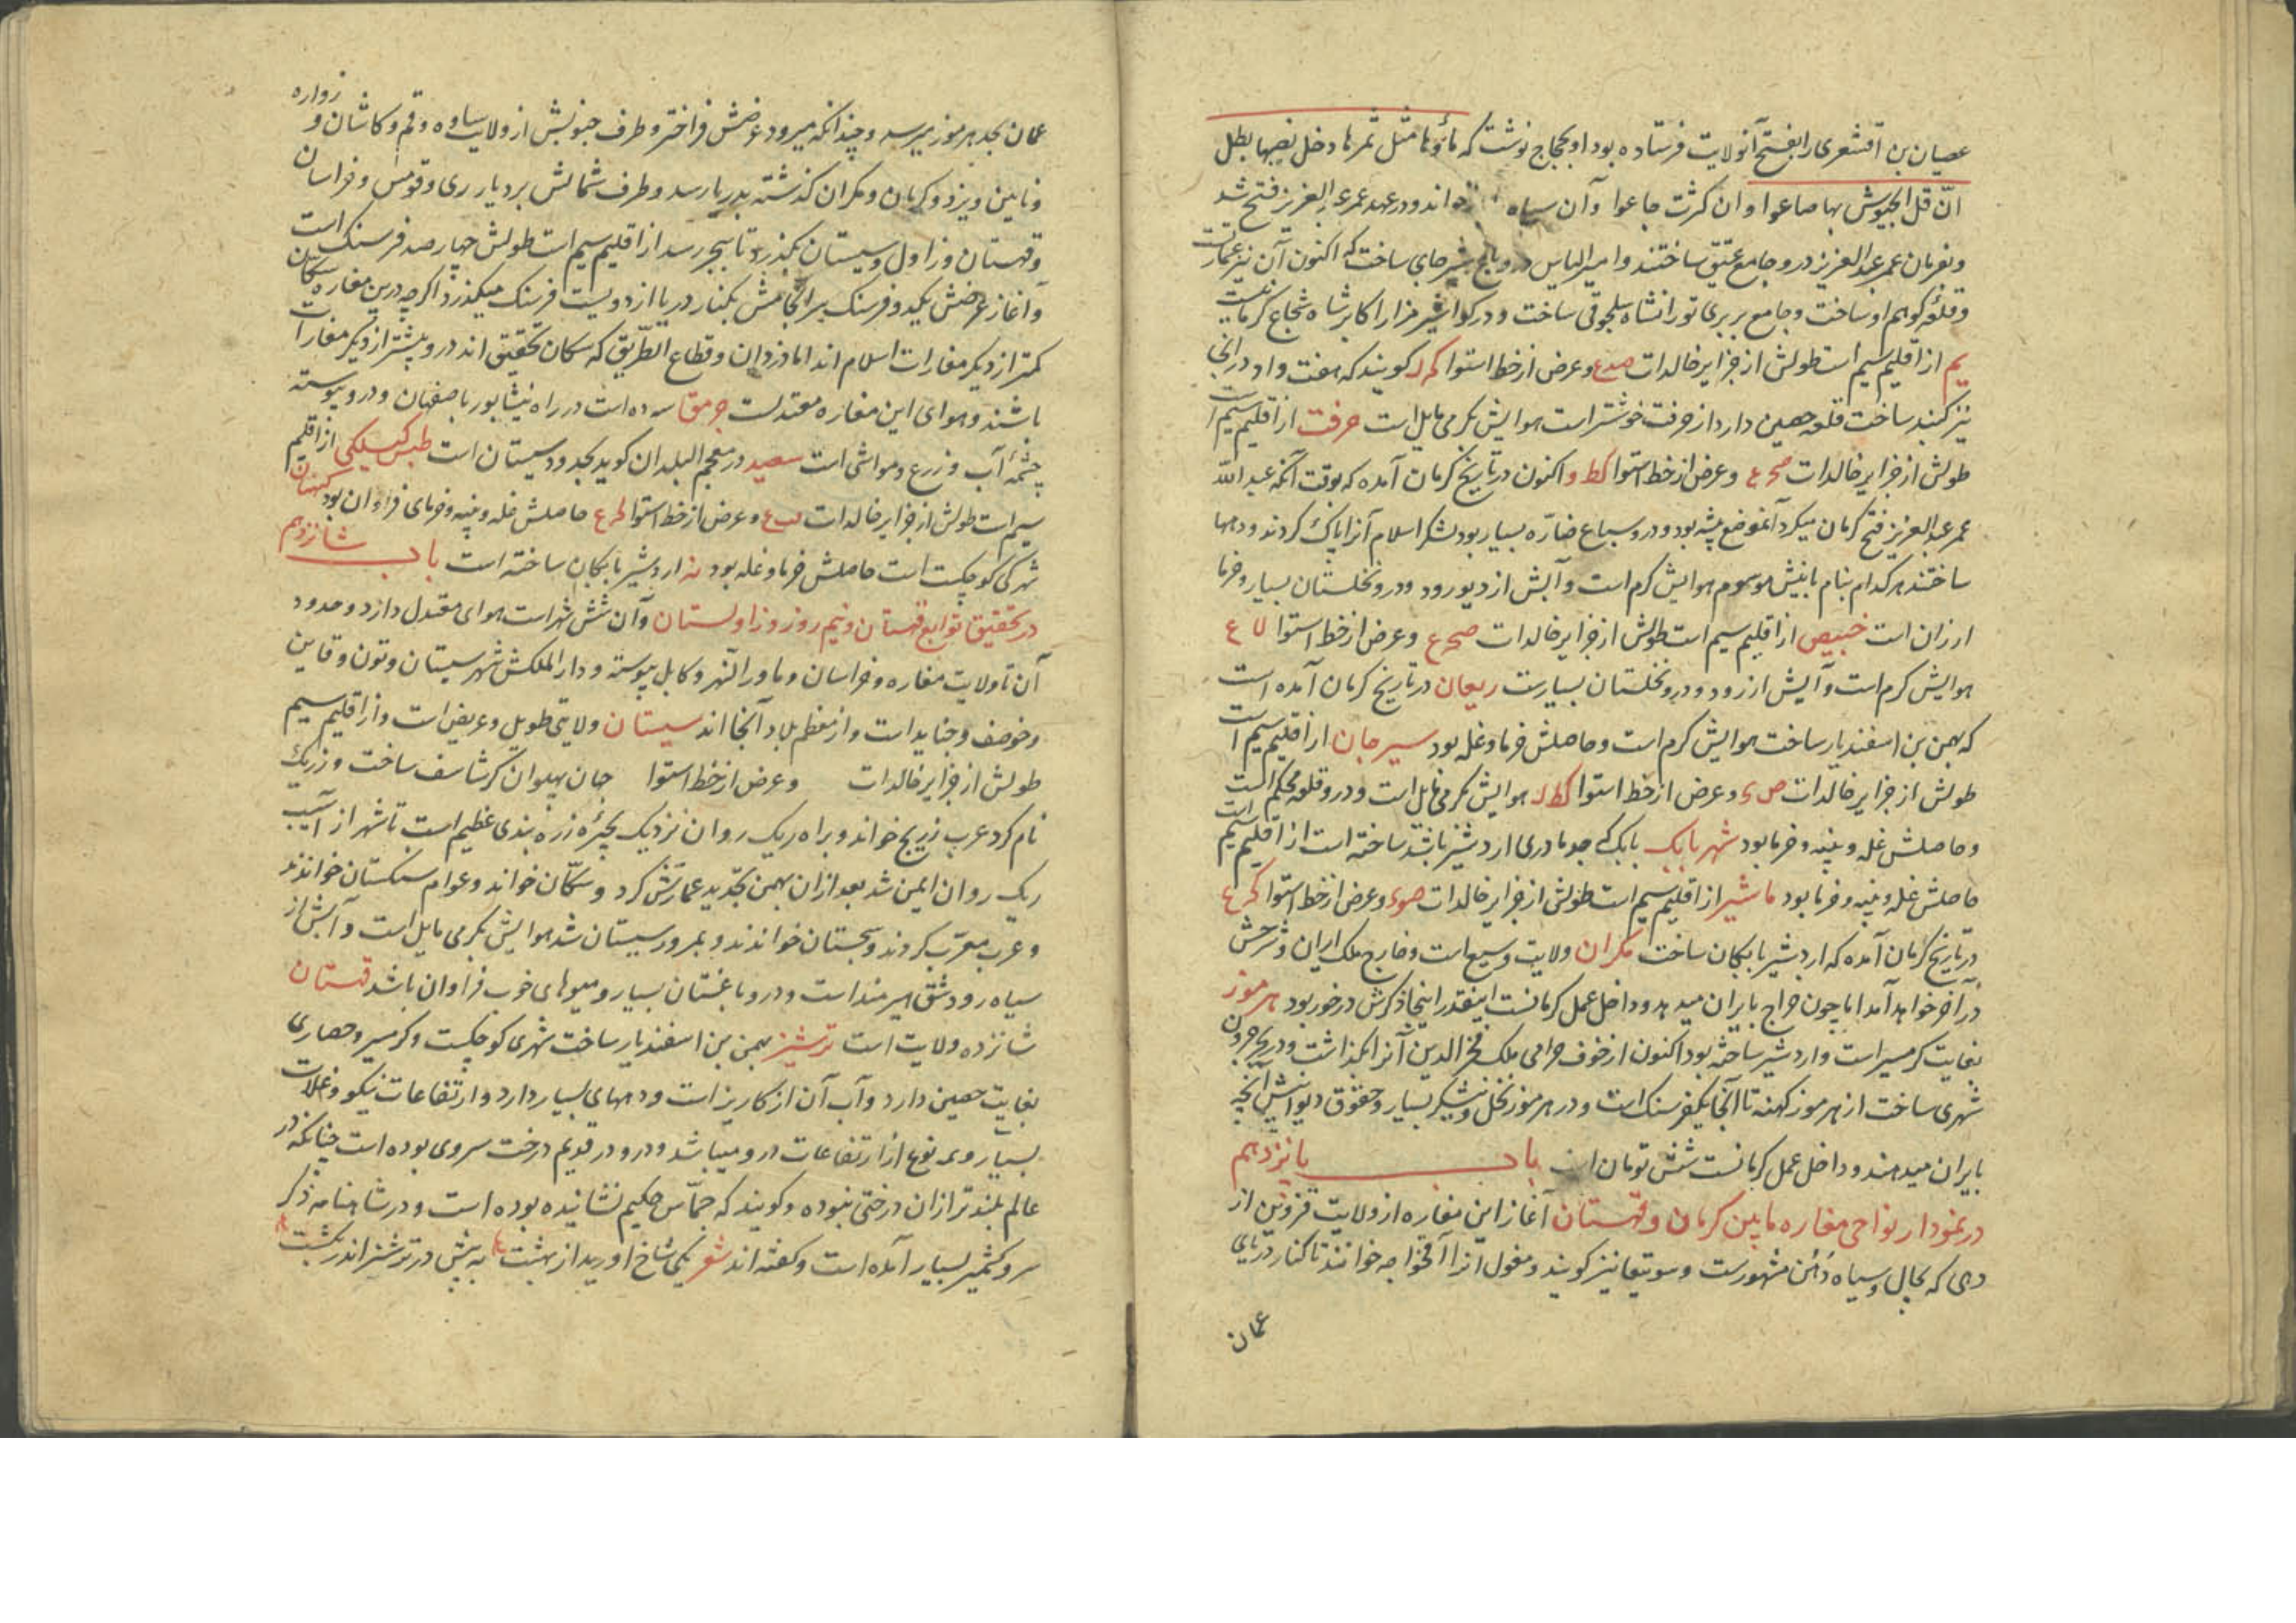 عصیان بن اقشعری را بفتح آنولایت فرستاده بود او بحجاج نوشت که ماؤها مثل ثمرها دخل لصیها بطل
انّ قل الجیوش بها ضاعوا وان کثرت جاعوا وآن سپاه خواند ودر عهد عمر عبد العزیز فتح شد
وبفرمان عمر عبد العزیز درو جامع عتیق ساختند وامیر الیاس درو باغ شیرجای ساخت که اکنون آن نیز عمارتست
وقلعه کوهم او ساخت وجامع بربری تورانشاه سلجوقی ساخت ودر کواشیر مزار اکابر شاه شجاع کرمانیست
بم از اقلیم سیم است طولش از جزایر خالدات صدع وعرض از خط استوا کد کویند که هفت واد در آنجا
نیز کنند ساخت قلعه حصین دارد از جرفت خوشتر است هوایش بکرمی مایل است جرفت از اقلیم سیم است
طولش از جزایر خالدات صح ع وعرض از خط استوا کط و اکنون در تاریخ کرمان آمده که بوقت آنکه عبد الله
عمر عبد العزیز فتح کرمان میکرد آنموضع بیشه بود ودرو سباع ضارّه بسیار بود لشکر اسلام آنرا پاک کردند ودیهها
ساختند هر کدام بنام بانیش موسوم هوایش کرم است وآبش از دیو رود ودرو نخلستان بسیار وخرما
ارزان است خبیص از اقلیم سیم است طولش از جزایر خالدات صح ع وعرض از خط استوا لا ع
هوایش کرم است وآبش از رود ودرو نخلستان بسیارست ریعان در تاریخ کرمان آمده است
که بهمن بن اسفندیار ساخت هوایش کرم است وحاصلش خرما وغله بود سیرجان از اقلیم سیم است
طولش از جزایر خالدات ص ی وعرض از خط استوا کط ل هوایش بکرمی مایل است ودرو قلعه محکم است
وحاصلش غله وپنبه وخرما بود شهر بابک بابک که جد مادری اردشیر باشد ساخته است از اقلیم سیم است
حاصلش غله وپنبه وخرما بود ماشیز از اقلیم سیم است طولش از جزایر خالدات صوء وعرض از خط استوا کح ع
در تاریخ کرمان آمده که اردشیر بابکان ساخت مکران ولایت وسیع است وخارج ملک ایران وشرحش
در آخر خواهد آمد اما چون خراج بایران میدهد وداخل عمل کرمانست اینقدر اینجا ذکرش درخور بود هرموز
بغایت کرمسیر است واردشیر ساخته بود اکنون از خوف حرامی ملک فخر الدین آنرا بکذاشت ودر بحر جرون
شهری ساخت از هرموز کهنه تا آنجا یکفرسنک است ودر هرموز نخل ونیشکر بسیار وحقوق دیوانیش آنچه
بایران میدهند وداخل عمل کرمانست شش تومان است باب پانزدهم
در نمودار نواحی مفازه مابین کرمان وقهستان آغاز این مفازه از ولایت قزوین از
دهی که بجال وسیاه دمن مشهورست وسوتیقا نیز کویند ومغول آنرا آقخواجه خوانند تا کنار دریای
عمان
عمان بحد هرموز میرسد وچندانکه میرود عرضش فراختر وطرف جنوبش از ولایت ساوه وقم وکاشان وزواره
ونایین ویزد وکرمان ومکران کذشته بدریا رسد وطرف شمالش بر دیار ری وقومس وخراسان
وقهستان وزاول وسیستان بکذرد تا ببحر رسد از اقلیم سیم است طولش چهار صد فرسنک است
وآغاز عرضش یکدو فرسنک سرانجامش بکنار دریا از دویست فرسنک میکذرد اکرچه درین مفازه سکان
کمتر از دیکر مفازات اسلام اند اما دزدان وقطاع الطریق که سکان تحقیق اند درو بیشتر از دیکر مفازات
باشند وهوای این مفازه معتدلست جرمق سه ده است در راه نیشابور باصفهان ودرو پیوسته
چشمه آب وزرع ومواشی است سعید در معجم البلدان کوید بحدود سیستان است طبس کیلکی از اقلیم
سیم است طولش از جزایر خالدات صب ع وعرض از خط استوا لح ع حاصلش غله وپنبه وخرمای فراوان بود کهنان
شهرکی کوچکست است حاصلش خرما وغله بود نه اردشیر بابکان ساخته است باب شانزدهم
در تحقیق توابع قهستان ونیم روز وزاولستان وآن شش شهر است هوای معتدل دارد وحدود
آن تا ولایت مفازه وخراسان وماوراء النهر وکابل پیوسته ودار الملکش شهر سیستان وتون وقاین
وخوصف وجنابد است واز معظم بلاد آنجا اند سیستان ولایتی طویل وعریض است واز اقلیم سیم
طولش از جزایر خالدات وعرض از خط استوا جهان پهلوان کرشاسف ساخت وزرنک
نام کرد عرب زرنج خواند وبراه ریک روان نزدیک بحیره زره بندی عظیم است تا شهر از آسیب
ریک روان ایمن شد بعد از آن بهمن تجدید عمارتش کرد وسکان خواند وعوام سکستان خواندند
وعرب معرّب کردند وسجستان خواندند وبمرور سیستان شد هوایش بکرمی مایل است وآبش از
سیاه رود شق هیرمند است ودرو باغستان بسیار ومیوهای خوب فراوان باشد قهستان
شانزده ولایت است ترشیز بهمن بن اسفندیار ساخت شهری کوچکست وکرمسیر وحصاری
بغایت حصین دارد وآب آن از کاریز است ودیههای بسیار دارد وارتفاعات نیکو وغلات
بسیار وهر نوع از ارتفاعات درو میباشد ودرو در قدیم درخت سروی بوده است چنانکه در
عالم بلندتر از آن درختی نبوده وکویند که جماس حکیم نشانیده بوده است ودر شاهنامه ذکر
سرو کشمیر بسیار آمده است وکفته اند شعر یکی شاخ اورید از بهشت به پیش در ترشیز اندر بکشت